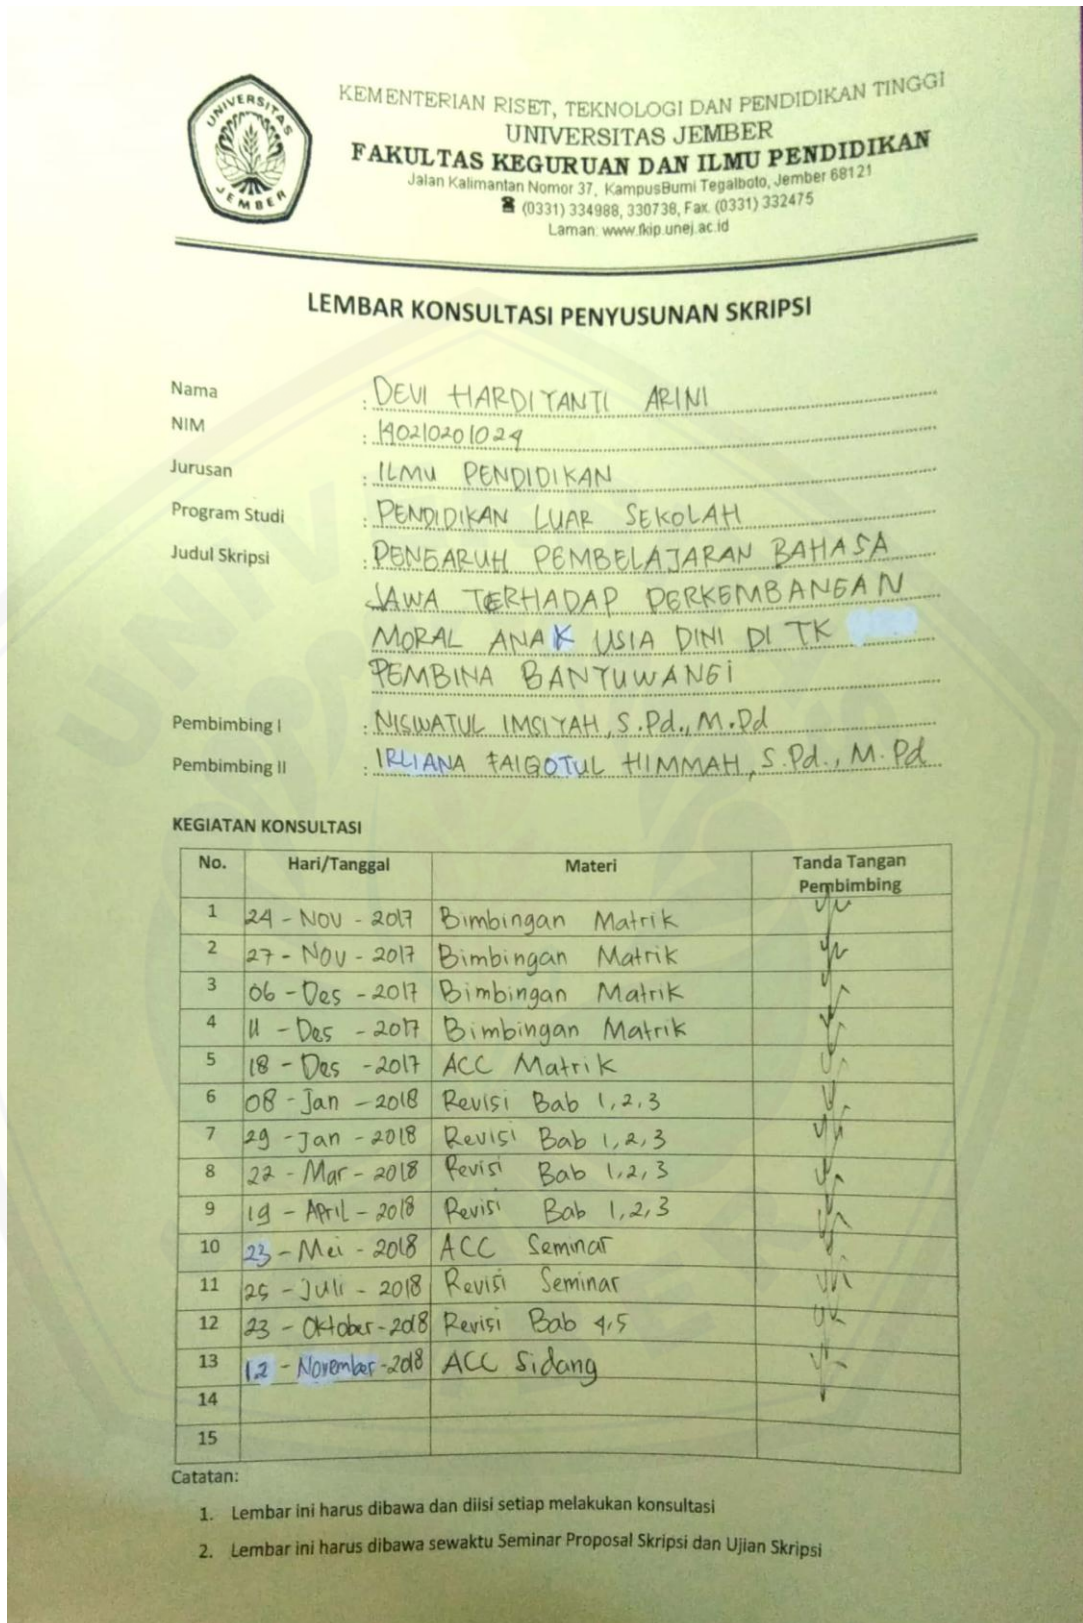 UNIVERSITAS
JEMBER
KEMENTERIAN RISET, TEKNOLOGI DAN PENDIDIKAN TINGGI
UNIVERSITAS JEMBER
FAKULTAS KEGURUAN DAN ILMU PENDIDIKAN
Jalan Kalimantan Nomor 37, KampusBumi Tegalboto, Jember 68121
☎ (0331) 334988, 330738, Fax. (0331) 332475
Laman: www.fkip.unej.ac.id
LEMBAR KONSULTASI PENYUSUNAN SKRIPSI
Nama : DEVI HARDIYANTI ARINI
NIM : 140210201024
Jurusan : ILMU PENDIDIKAN
Program Studi : PENDIDIKAN LUAR SEKOLAH
Judul Skripsi : PENGARUH PEMBELAJARAN BAHASA
JAWA TERHADAP PERKEMBANGAN
MORAL ANAK USIA DINI DI TK
PEMBINA BANYUWANGI
Pembimbing I : NISWATUL IMSIYAH, S.Pd., M.Pd
Pembimbing II : IRLIANA FAIQOTUL HIMMAH, S.Pd., M.Pd
KEGIATAN KONSULTASI
No. Hari/Tanggal Materi Tanda Tangan Pembimbing
1 24 - NOV - 2017 Bimbingan Matrik
2 27 - NOV - 2017 Bimbingan Matrik
3 06 - Des - 2017 Bimbingan Matrik
4 11 - Des - 2017 Bimbingan Matrik
5 18 - Des - 2017 ACC Matrik
6 08 - Jan - 2018 Revisi Bab 1,2,3
7 29 - Jan - 2018 Revisi Bab 1,2,3
8 22 - Mar - 2018 Revisi Bab 1,2,3
9 19 - April - 2018 Revisi Bab 1,2,3
10 23 - Mei - 2018 ACC Seminar
11 25 - Juli - 2018 Revisi Seminar
12 23 - Oktober - 2018 Revisi Bab 4,5
13 12 - November - 2018 ACC Sidang
14
15
Catatan:
1. Lembar ini harus dibawa dan diisi setiap melakukan konsultasi
2. Lembar ini harus dibawa sewaktu Seminar Proposal Skripsi dan Ujian Skripsi